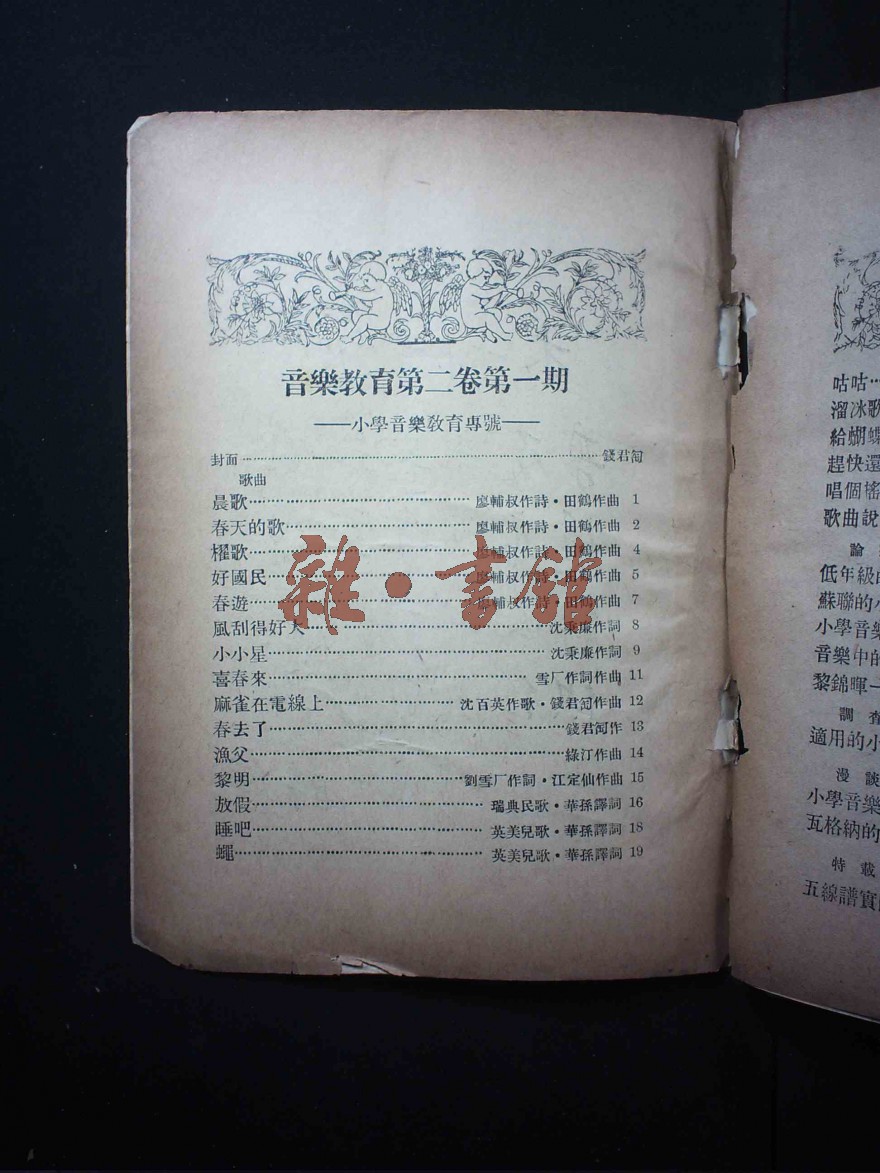 音樂教育第二卷第一期
——小學音樂教育專號——
封面……錢君匋
歌曲
晨歌……廖輔叔作詩・田鶴作曲 1
春天的歌……廖輔叔作詩・田鶴作曲 2
櫂歌……廖輔叔作詩・田鶴作曲 4
好國民……廖輔叔作詩・田鶴作曲 5
春遊……廖輔叔作詩・田鶴作曲 7
風刮得好大……沈秉廉作詞 8
小小星……沈秉廉作詞 9
喜春來……雪厂作詞作曲 11
麻雀在電線上……沈百英作歌・錢君匋作曲 12
春去了……錢君匋作 13
漁父……綠汀作曲 14
黎明……劉雪厂作詞・江定仙作曲 15
放假……瑞典民歌・華孫譯詞 16
睡吧……英美兒歌・華孫譯詞 18
蠅……英美兒歌・華孫譯詞 19
雜・書館
咕咕…
溜冰歌
給蝴蝶
趕快還
唱個搖
歌曲說
論
低年級的
蘇聯的小
小學音樂
音樂中的
黎錦暉一
調查
適用的小
漫談
小學音樂
瓦格納的
特載
五線譜實